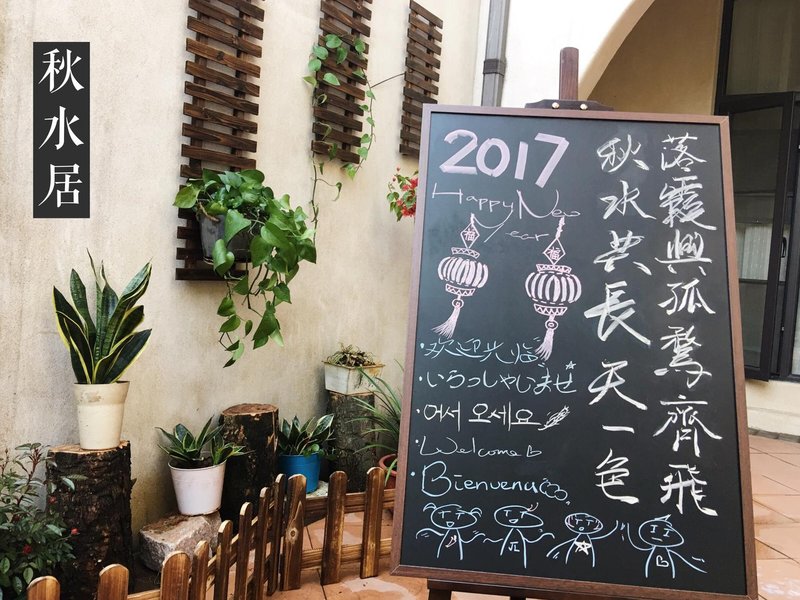 秋水居
2017
Happy New
Year
福
福
落霞與孤鶩齊飛
秋水共長天一色
·欢迎光临!
·いらっしゃいませ
·어서 오세요
·Welcome
·Bienvenu